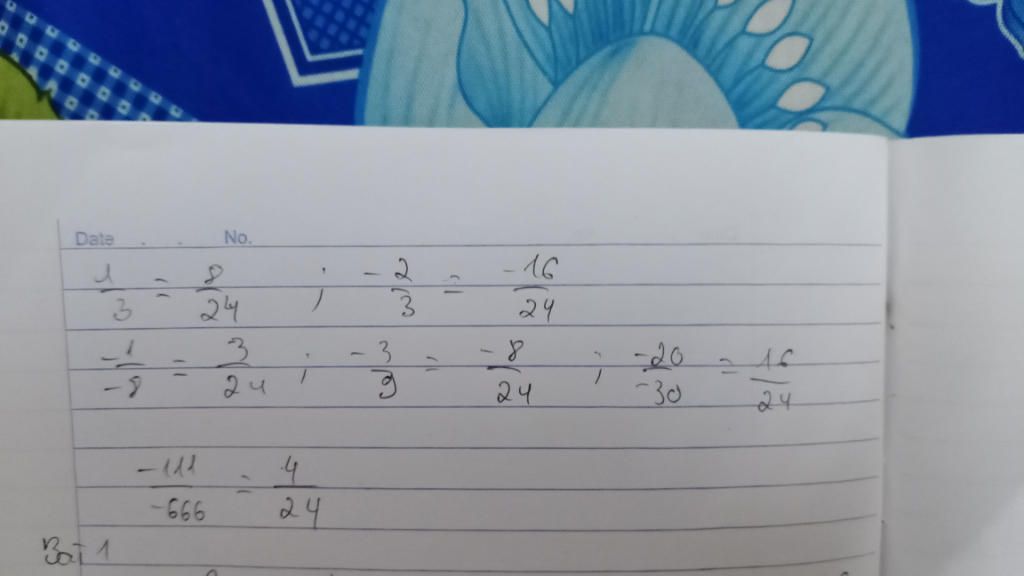 Date . . No.
1/3 = 8/24 ; -2/3 = -16/24
-1/-8 = 3/24 ; -3/9 = -8/24 ; -20/-30 = 16/24
-111/-666 = 4/24
Bài 1